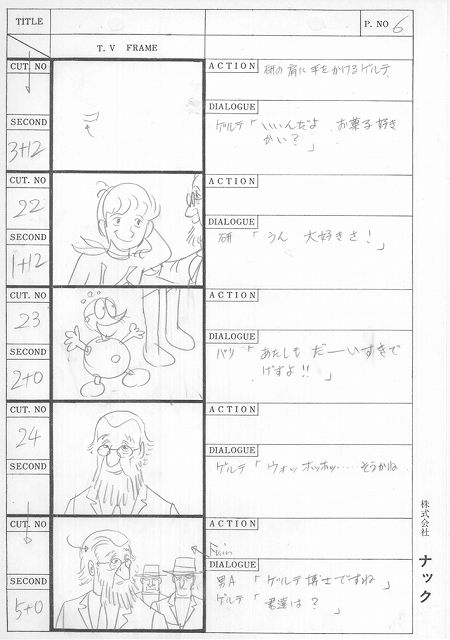 TITLE
P. NO 6
T. V FRAME
CUT. NO
ACTION 研の肩に手をかけるゲルテ
SECOND
3+12
DIALOGUE
ゲルテ「いいんだよ お菓子好き
かい?」
CUT. NO
22
ACTION
SECOND
1+12
DIALOGUE
研「うん 大好きさ!」
CUT. NO
23
ACTION
SECOND
2+0
DIALOGUE
パリ「あたしも だーいすきで
げすよ!!」
CUT. NO
24
ACTION
SECOND
DIALOGUE
ゲルテ「ウォッホッホッ……そうかね
CUT. NO
ACTION
SECOND
5+0
DIALOGUE
男A「ゲルテ博士ですね」
ゲルテ「君達は?」
株式会社 ナック